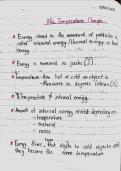 8Ia Temperature Changes
* Energy stored in the movement of particles is
called internal energy / thermal energy or heat
energy.
* Energy is measured in joules (J).
* Temperature - How hot or cold an object is
- Measured in degrees Celsius (
* Temperature ≠ internal energy.
* Amount of internal energy stored depends on
- temperature
- material
- mass
* Energy flows from hotter to colder objects until
they become the same temperature